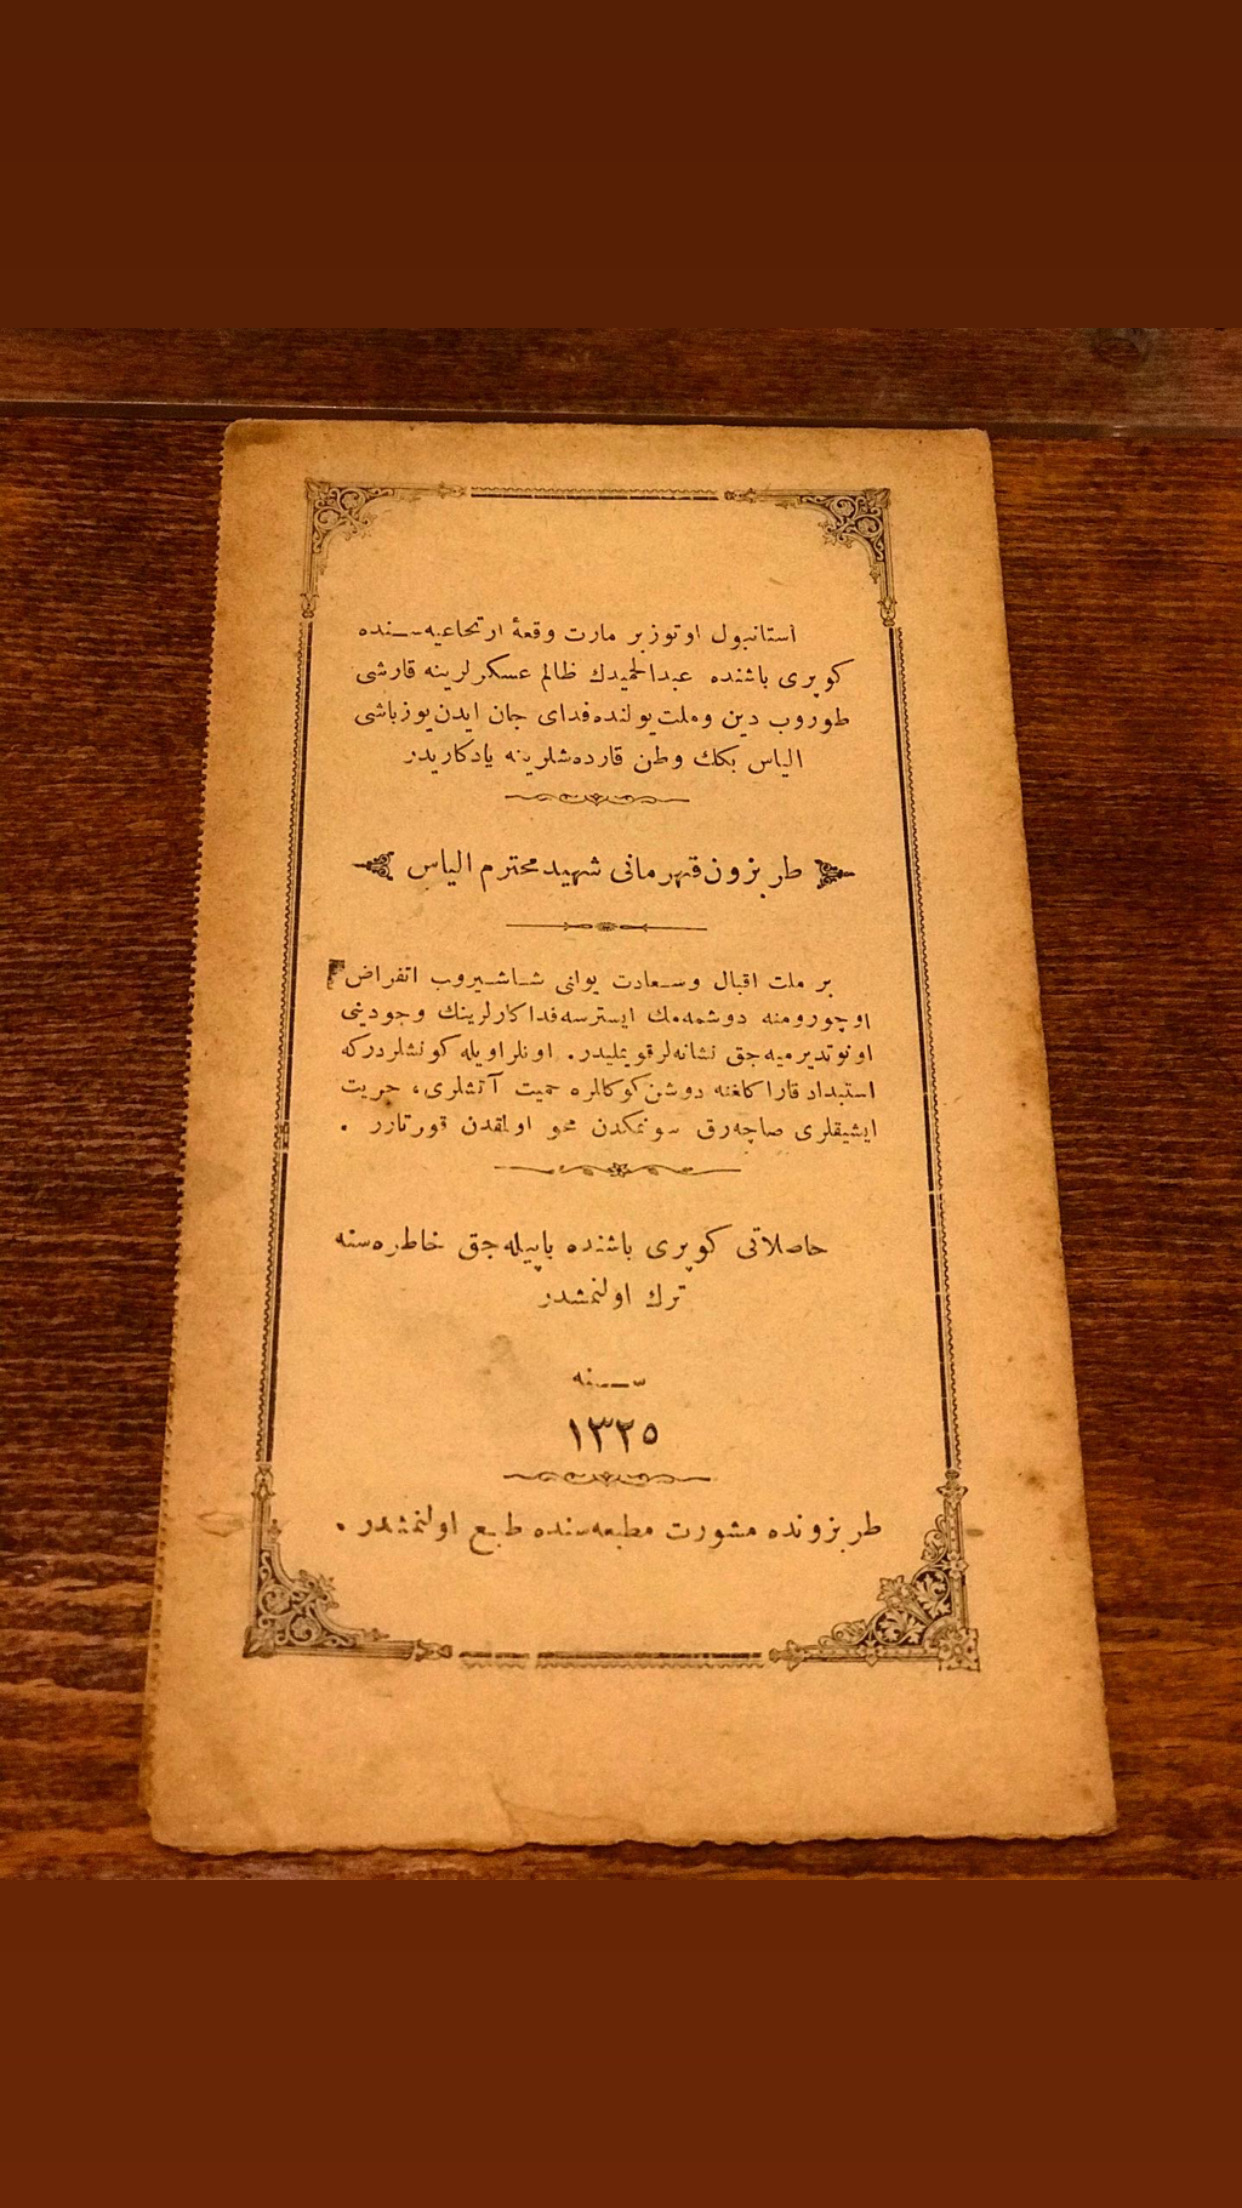 استانبول اوتوز بر مارت وقعهٔ ارتجاعیه سـنده
کوپری باشنده عبدالحمیدك ظالم عسکرلرینه قارشی
طوروب دین وملت یولنده فدای جان ایدن یوزباشی
الیاس بكك وطن قارده‌شلرینه یادکاریدر
طربزون قهرمانی شهید محترم الیاس
بر ملت اقبال وسـعادت یولنی شـاشـیروب انقراض
اوچورومنه دوشمه‌مك ایسترسه فداکارلرینك وجودینی
اونوتدیرمیه‌جق نشانه‌لر قویملیدر. اونلر اویله کونشلردرکه
استبداد قاراکلغنه دوشن کوکللره حمیت آتشلری، حریت
ایشیقلری صاچه‌رق سونمکدن محو اولمقدن قورتارر .
حاصلاتی کوپری باشنده یاپیله‌جق خاطره‌سنه
ترك اولنمشدر
سـنه
١٣٢٥
طربزونده مشورت مطبعه‌سنده طبع اولنمشدر .